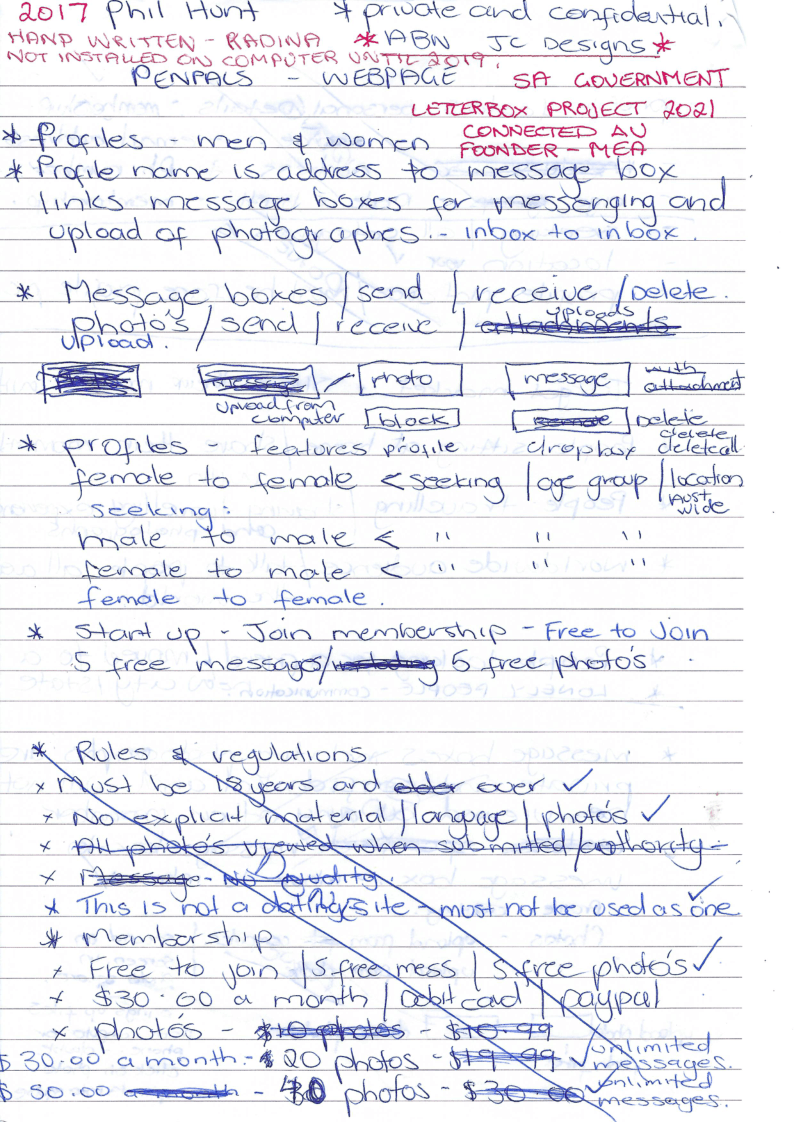 2017 Phil Hunt * private and confidential.
HAND WRITTEN - RADINA * ABN JC Designs *
NOT INSTALLED ON COMPUTER UNTIL 2019.
PENPALS - WEBPAGE SA GOVERNMENT
LETTERBOX PROJECT 2021
* Profiles - men & women CONNECTED AU
FOUNDER - MEA
* Profile name is address to message box
links message boxes for messenging and
upload of photographes. - inbox to inbox.
* Message boxes / send / receive / Delete.
uploads
photo's / send / receive / attachments
upload.
photo message / photo message with
attachment
upload from
computer block remove Delete
delete
* profiles - features profile dropbox delete all
female to female < seeking / age group / location
Aust
wide
seeking:
male to male < " " "
female to male < " " "
female to female.
* Start up - Join membership - Free to Join
5 free messages/ 5 free photo's
* Rules & regulations
x Must be 18 years and older over ✓
x No explicit material / language / photo's ✓
x All photo's viewed when submitted / authority -
x Message - No Nudity.
x This is not a dating site - must not be used as one ✓
* Membership
x Free to join / 5 free mess / 5 free photo's ✓
x $30.00 a month / Debit card / paypal
x photo's - $10 photos - $10.99
$30.00 a month - 20 photos - $19.99 ✓ unlimited
messages.
$50.00 a month - 40 photos - $30.00 ✓ unlimited
messages.